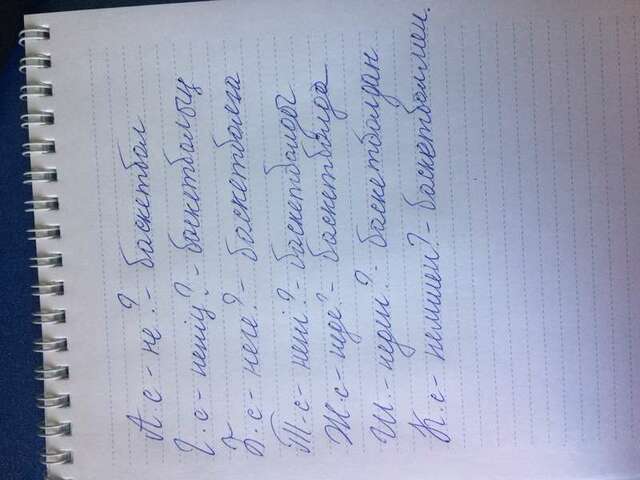 А.с - не? - баскетбол
І.с - неніц? - баскетболыц
Б.с - неге? - баскетболга
Т.с - нені? - баскетболды
Ж.с - неде? - баскетболда
Ш. - неден? - баскетболдан
К.с - немиен? - баскетболмен.